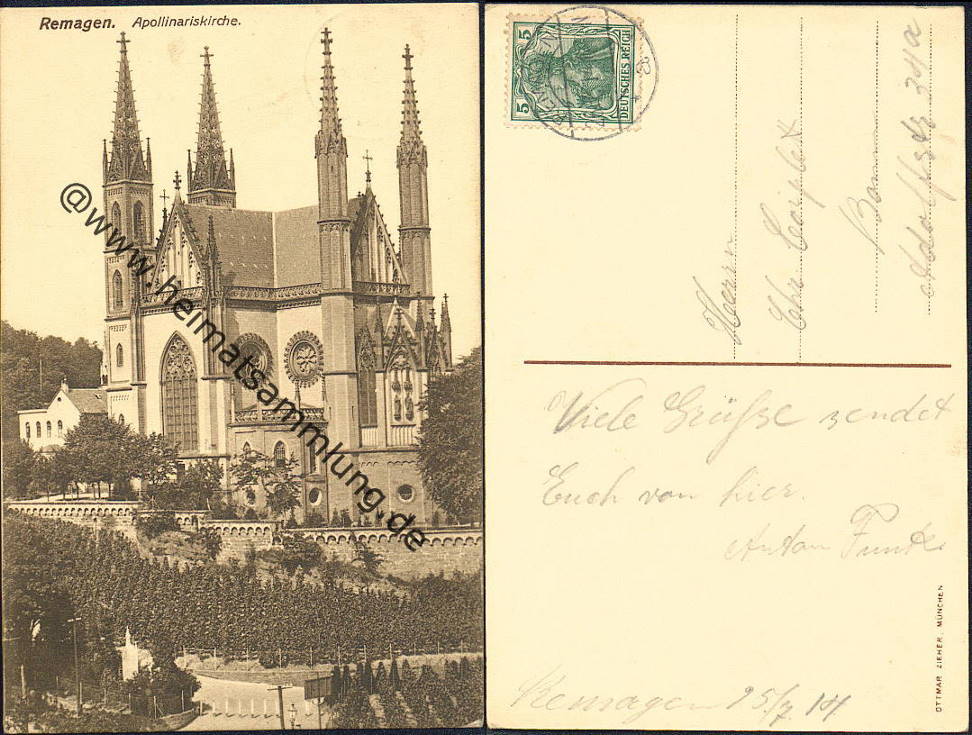 Remagen. Apollinariskirche.
@www.heimatsammlung.de
5 5
DEUTSCHES REICH
Herrn
Chr.
Bonn
Adolfstr 34a
Viele Grüße sendet
Euch von hier.
Anton Funk
Remagen 15/7 14
OTTMAR ZIEHER, MÜNCHEN